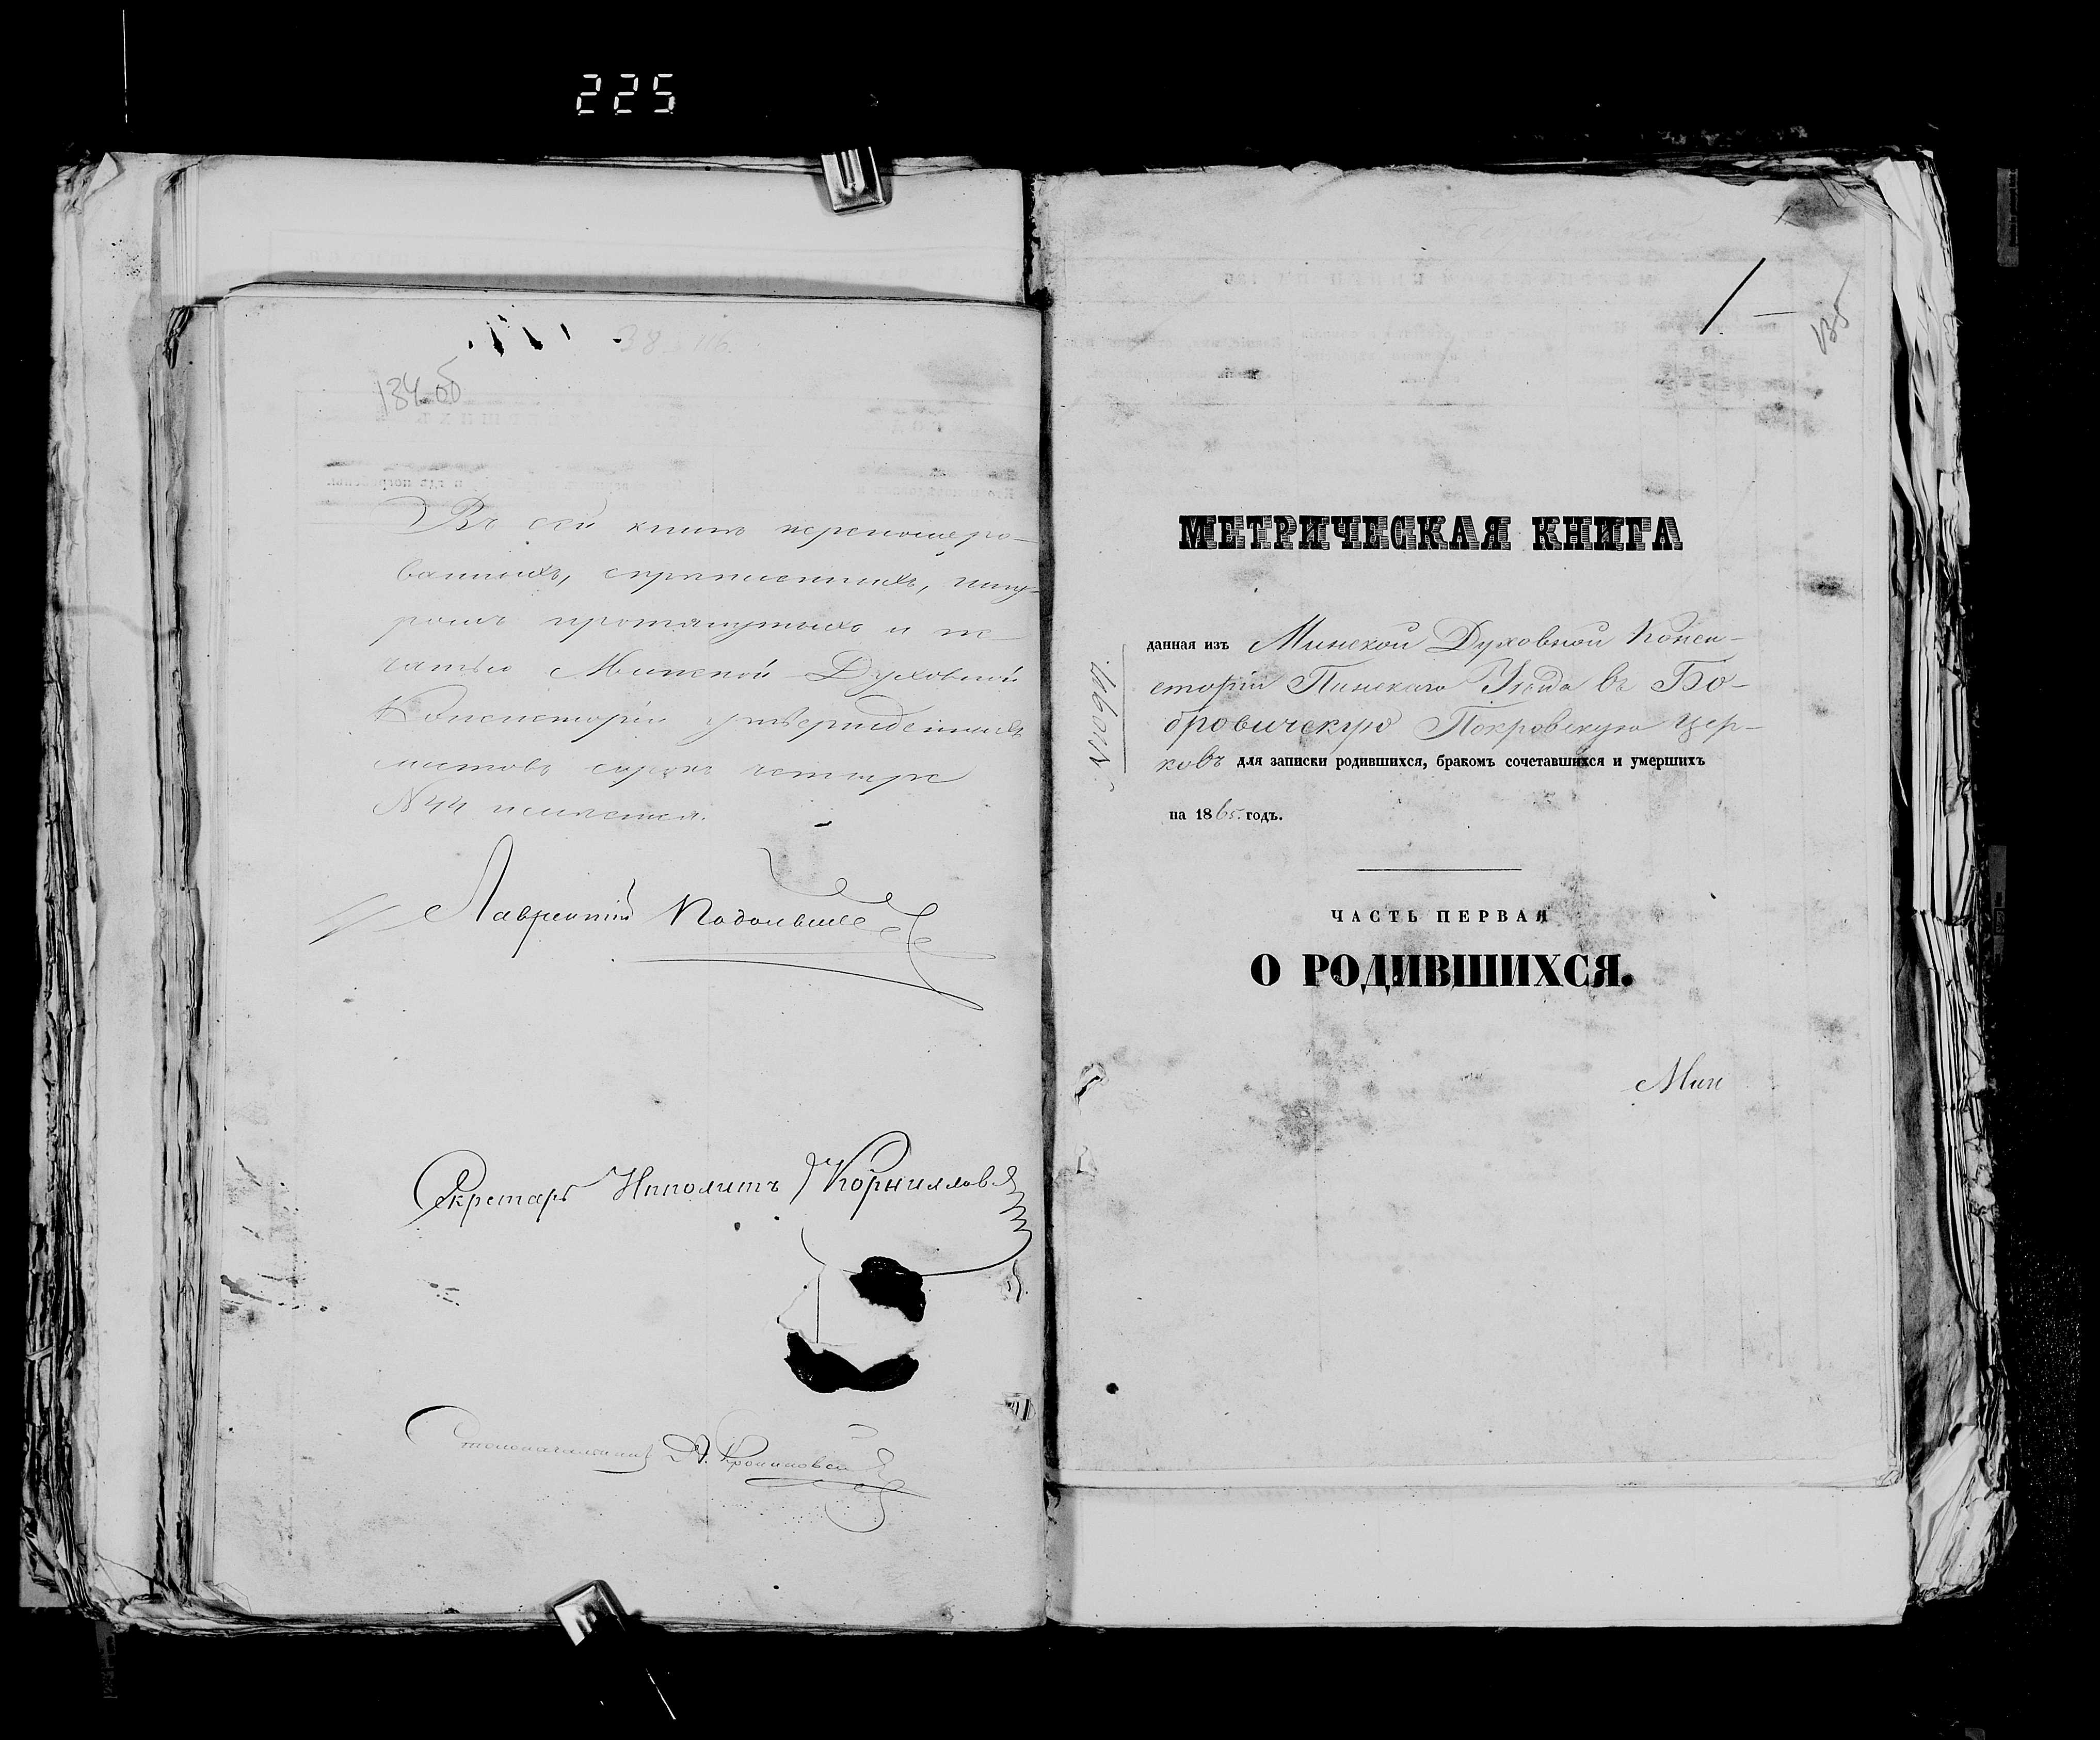 225
134 об
Въ сей книгѣ перенумеро-
ванныхъ, скрѣпленныхъ, шну-
ромъ протянутыхъ и пе-
чатью Минской Духовной
Консисторіи утвержденныхъ
листовъ сорокъ четыре
№ 44 имѣется.
Лаврентій
Секретарь Ипполитъ Корниллов
Столоначальникъ
1
135
МЕТРИЧЕСКАЯ КНИГА
данная изъ Минской Духовной Конси-
сторіи Пинскаго Уѣзда въ Бо-
бровичскую Покровскую цер-
ковь для записки родившихся, бракомъ сочетавшихся и умершихъ
на 1865. годъ.
ЧАСТЬ ПЕРВАЯ
О РОДИВШИХСЯ.
Мин